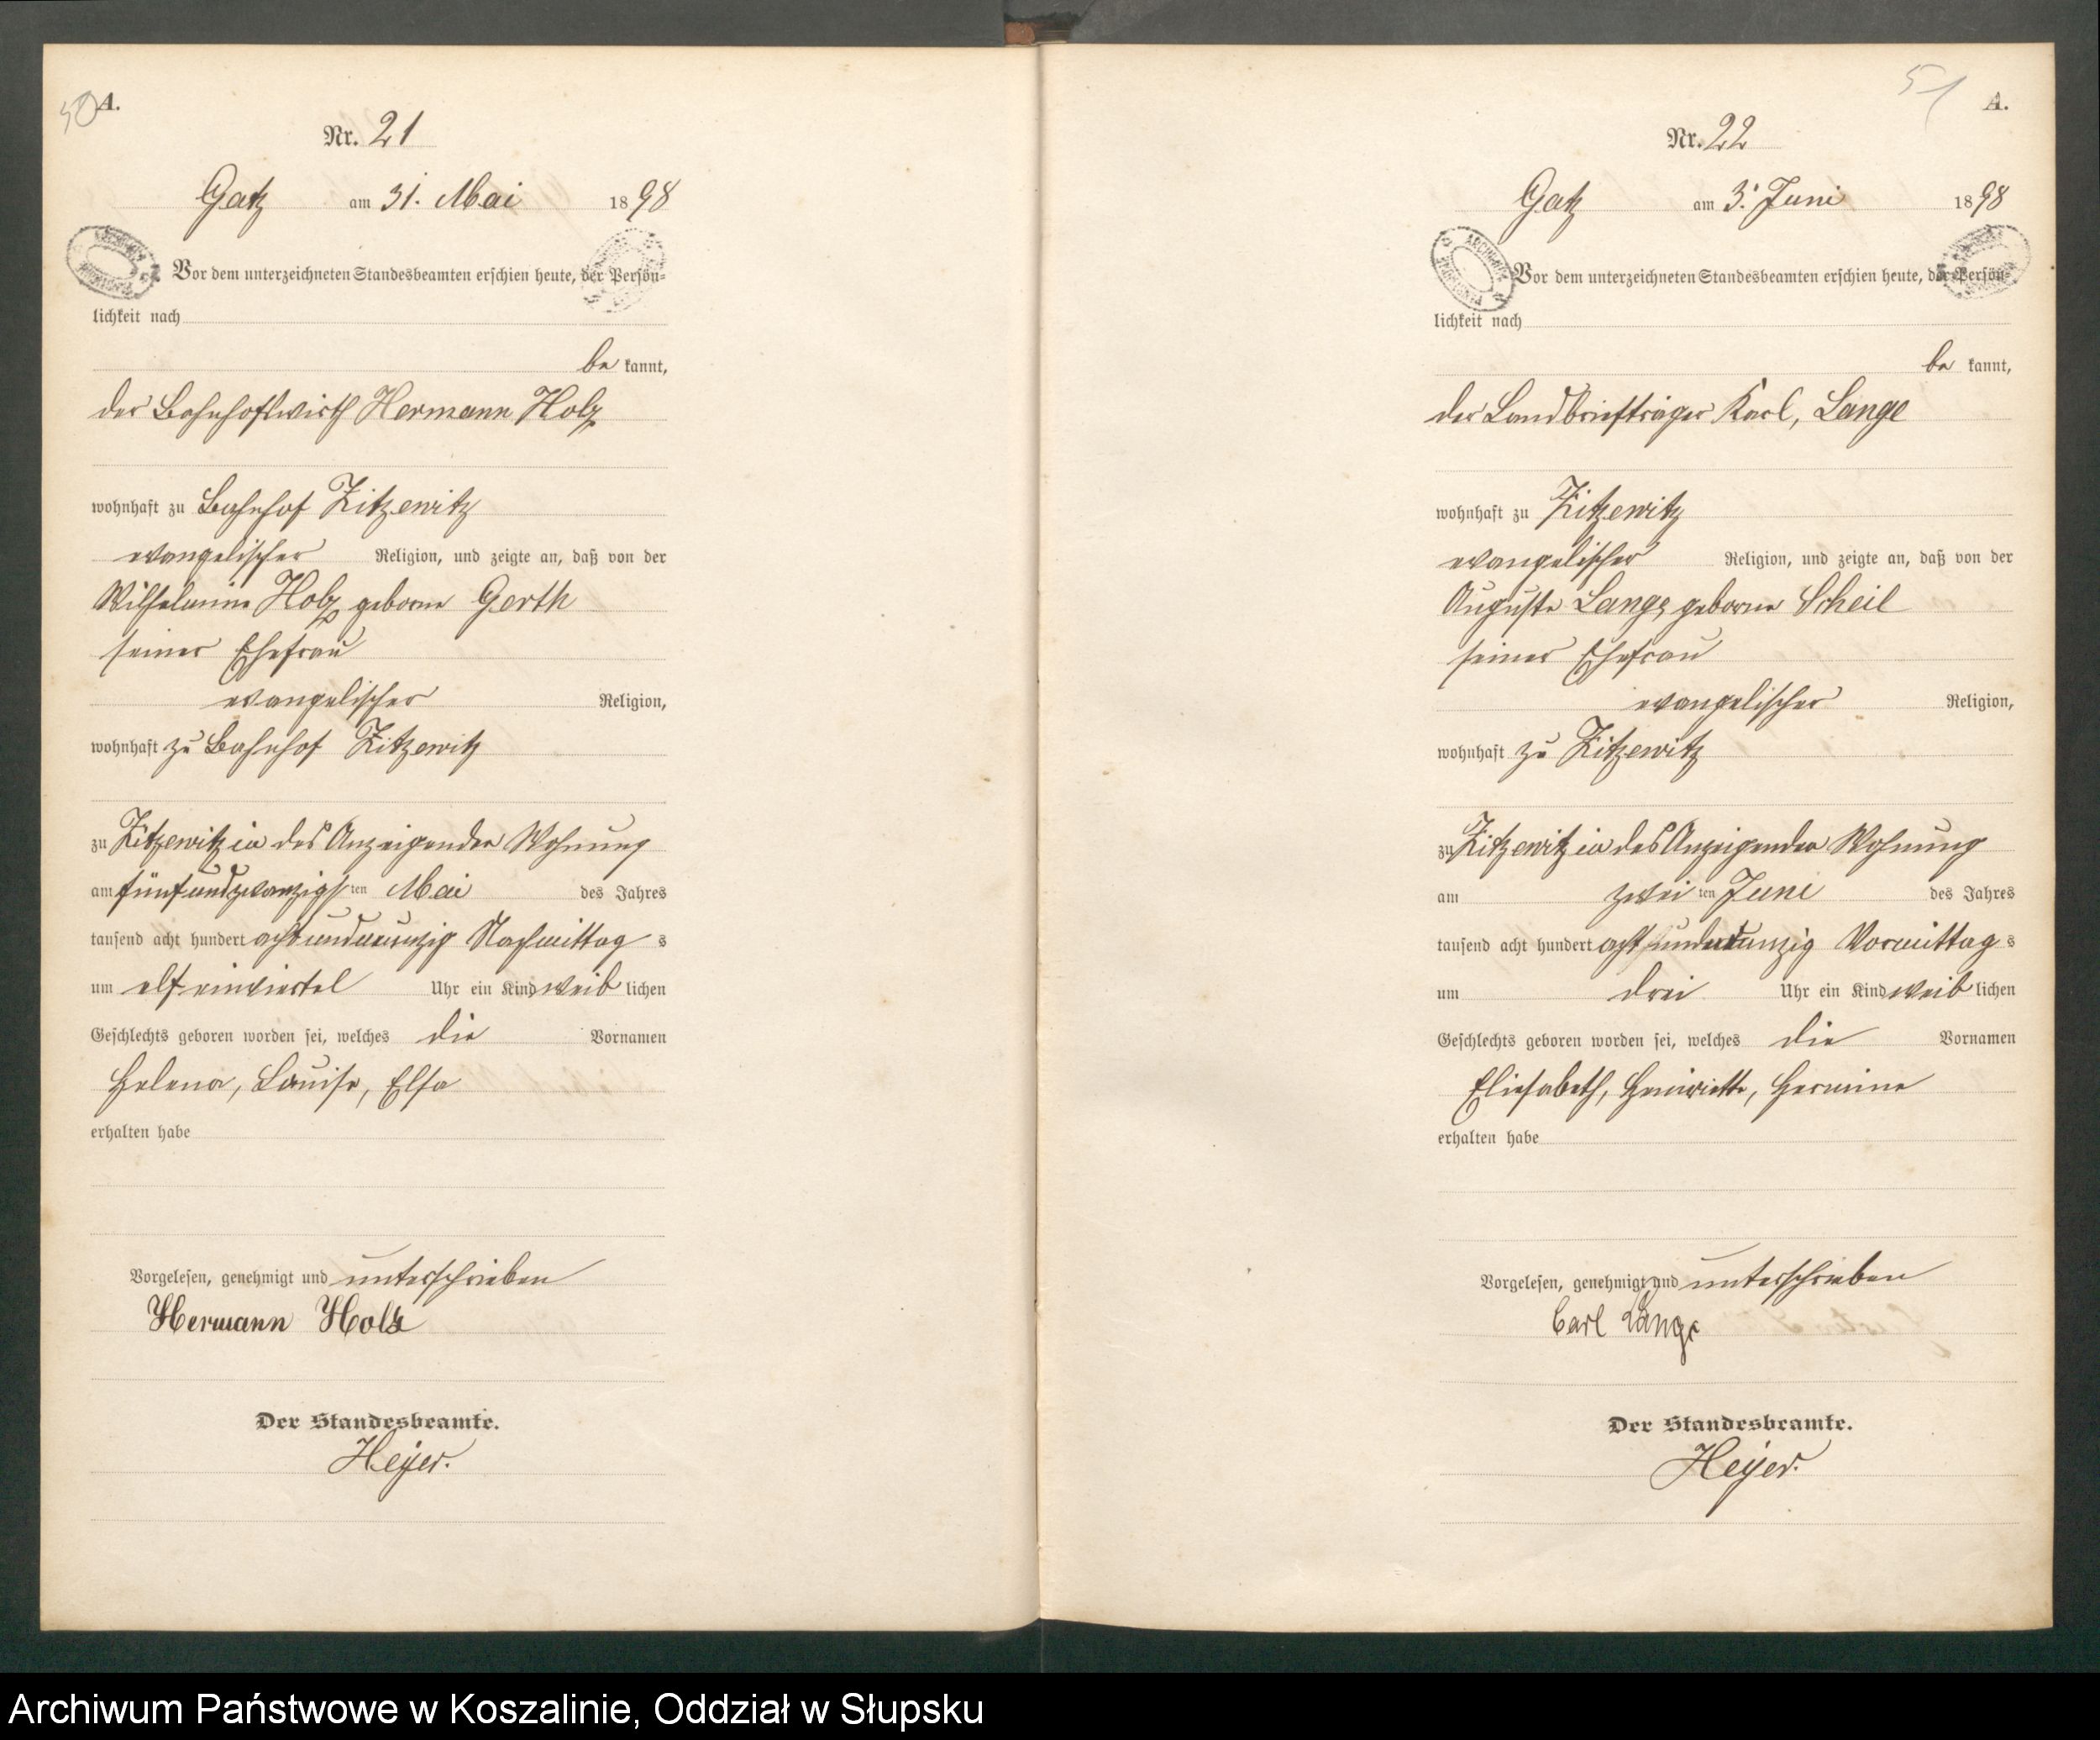 50
A.
Nr. 21
Gatz am 31. Mai 1898
Vor dem unterzeichneten Standesbeamten erschien heute, der Persön-
lichkeit nach
be kannt,
der Bahnhofswirth Hermann Holz
wohnhaft zu Bahnhof Zitzewitz
evangelischer Religion, und zeigte an, daß von der
Wilhelmine Holz geborne Gerth
seiner Ehefrau
evangelischer Religion,
wohnhaft zu Bahnhof Zitzewitz
zu Zitzewitz in des Anzeigenden Wohnung
am fünfundzwanzigsten Mai des Jahres
tausend acht hundert achtundneunzig Nachmittags
um elf einviertel Uhr ein Kind weiblichen
Geschlechts geboren worden sei, welches die Vornamen
Helena, Louise, Elsa
erhalten habe
Vorgelesen, genehmigt und unterschrieben
Hermann Holz
Der Standesbeamte.
Heyer.
51
A.
Nr. 22
Gatz am 3. Juni 1898
Vor dem unterzeichneten Standesbeamten erschien heute, der Persön-
lichkeit nach
be kannt,
der Landbriefträger Karl, Lange
wohnhaft zu Zitzewitz
evangelischer Religion, und zeigte an, daß von der
Auguste Lange geborne Scheil
seiner Ehefrau
evangelischer Religion,
wohnhaft zu Zitzewitz
zu Zitzewitz in des Anzeigenden Wohnung
am zweiten Juni des Jahres
tausend acht hundert achtundneunzig Vormittags
um drei Uhr ein Kind weiblichen
Geschlechts geboren worden sei, welches die Vornamen
Eliesabeth, Henriette, Hermine
erhalten habe
Vorgelesen, genehmigt und unterschrieben
Carl Lange
Der Standesbeamte.
Heyer.
Archiwum Państwowe w Koszalinie, Oddział w Słupsku